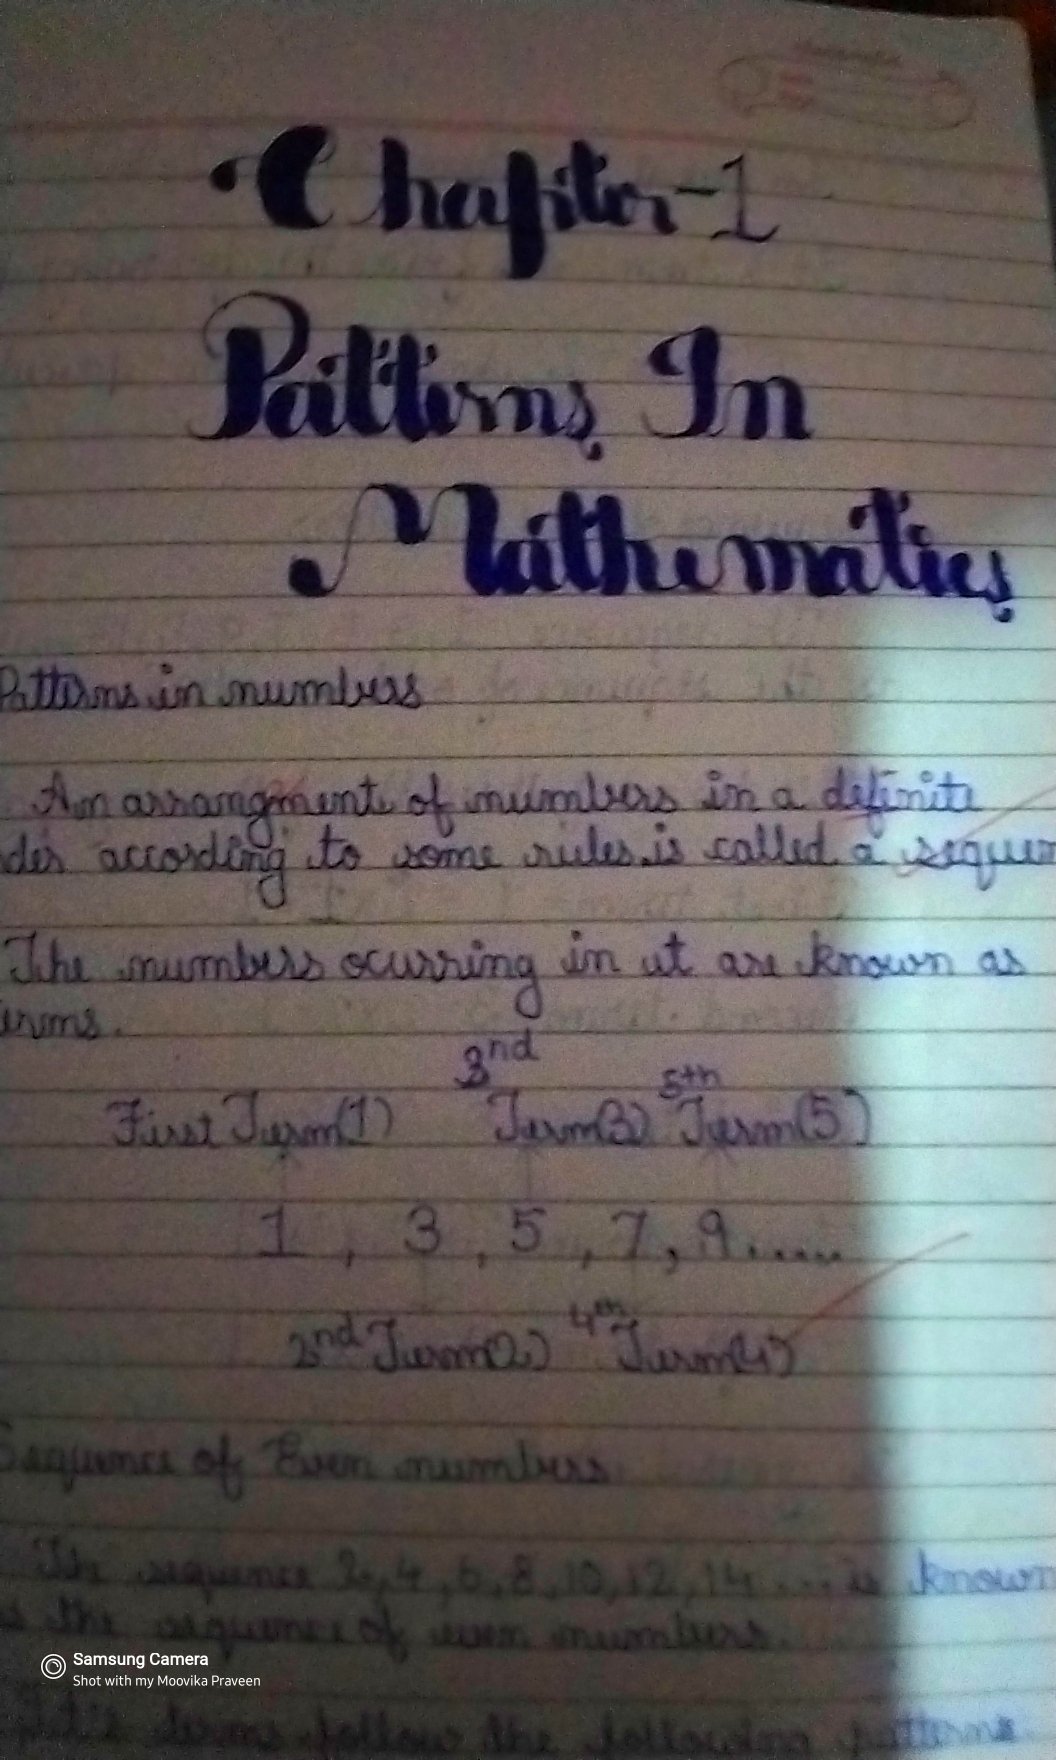 Chapter-1
Patterns In
Mathematics
Patterns in numbers
An arrangment of numbers in a definite
der according to some rules is called a sequen
The numbers ocurring in it are known as
erms.
3nd
5th
First Term(1) Term(3) Term(5)
1, 3, 5, 7, 9.....
2nd Term(2) 4th Term(4)
Sequence of Even numbers
The sequence 2,4,6,8,10,12,14.... is known
s the sequence of even numbers.
terms follow the following patterns
Samsung Camera
Shot with my Moovika Praveen